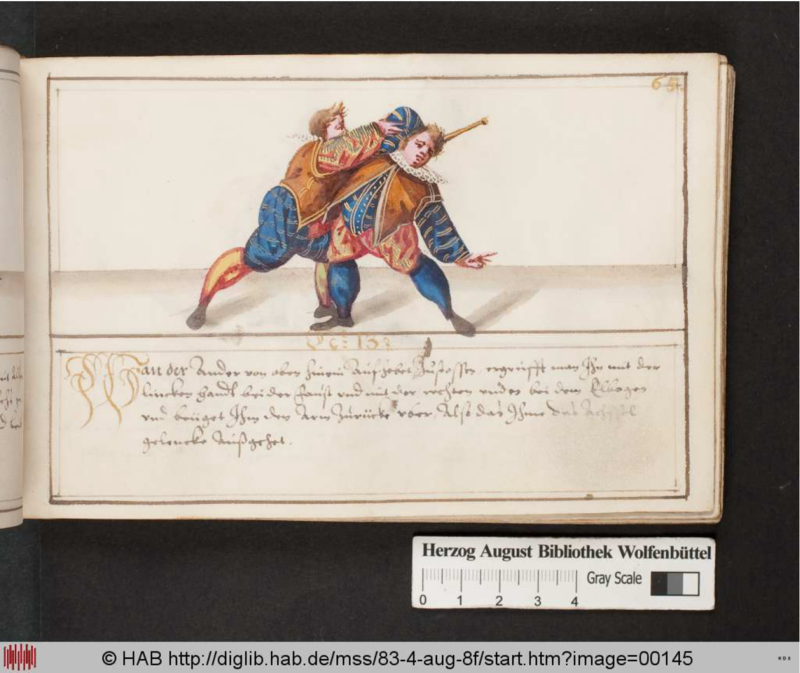 65.
N<u>o</u>: 13j
Wan der Ander von oben hinein Auffhebet Zustossen ergreifft man Ihn mit der
lincken handt bei der faust vnd mit der rechten vnden bei dem Elbogen
vnd beuget Ihm den Arm Zurücke vber Also das Ihme das Achssel
gelencke Außgehet.
Herzog August Bibliothek Wolfenbüttel
Gray Scale
0 1 2 3 4
© HAB http://diglib.hab.de/mss/83-4-aug-8f/start.htm?image=00145